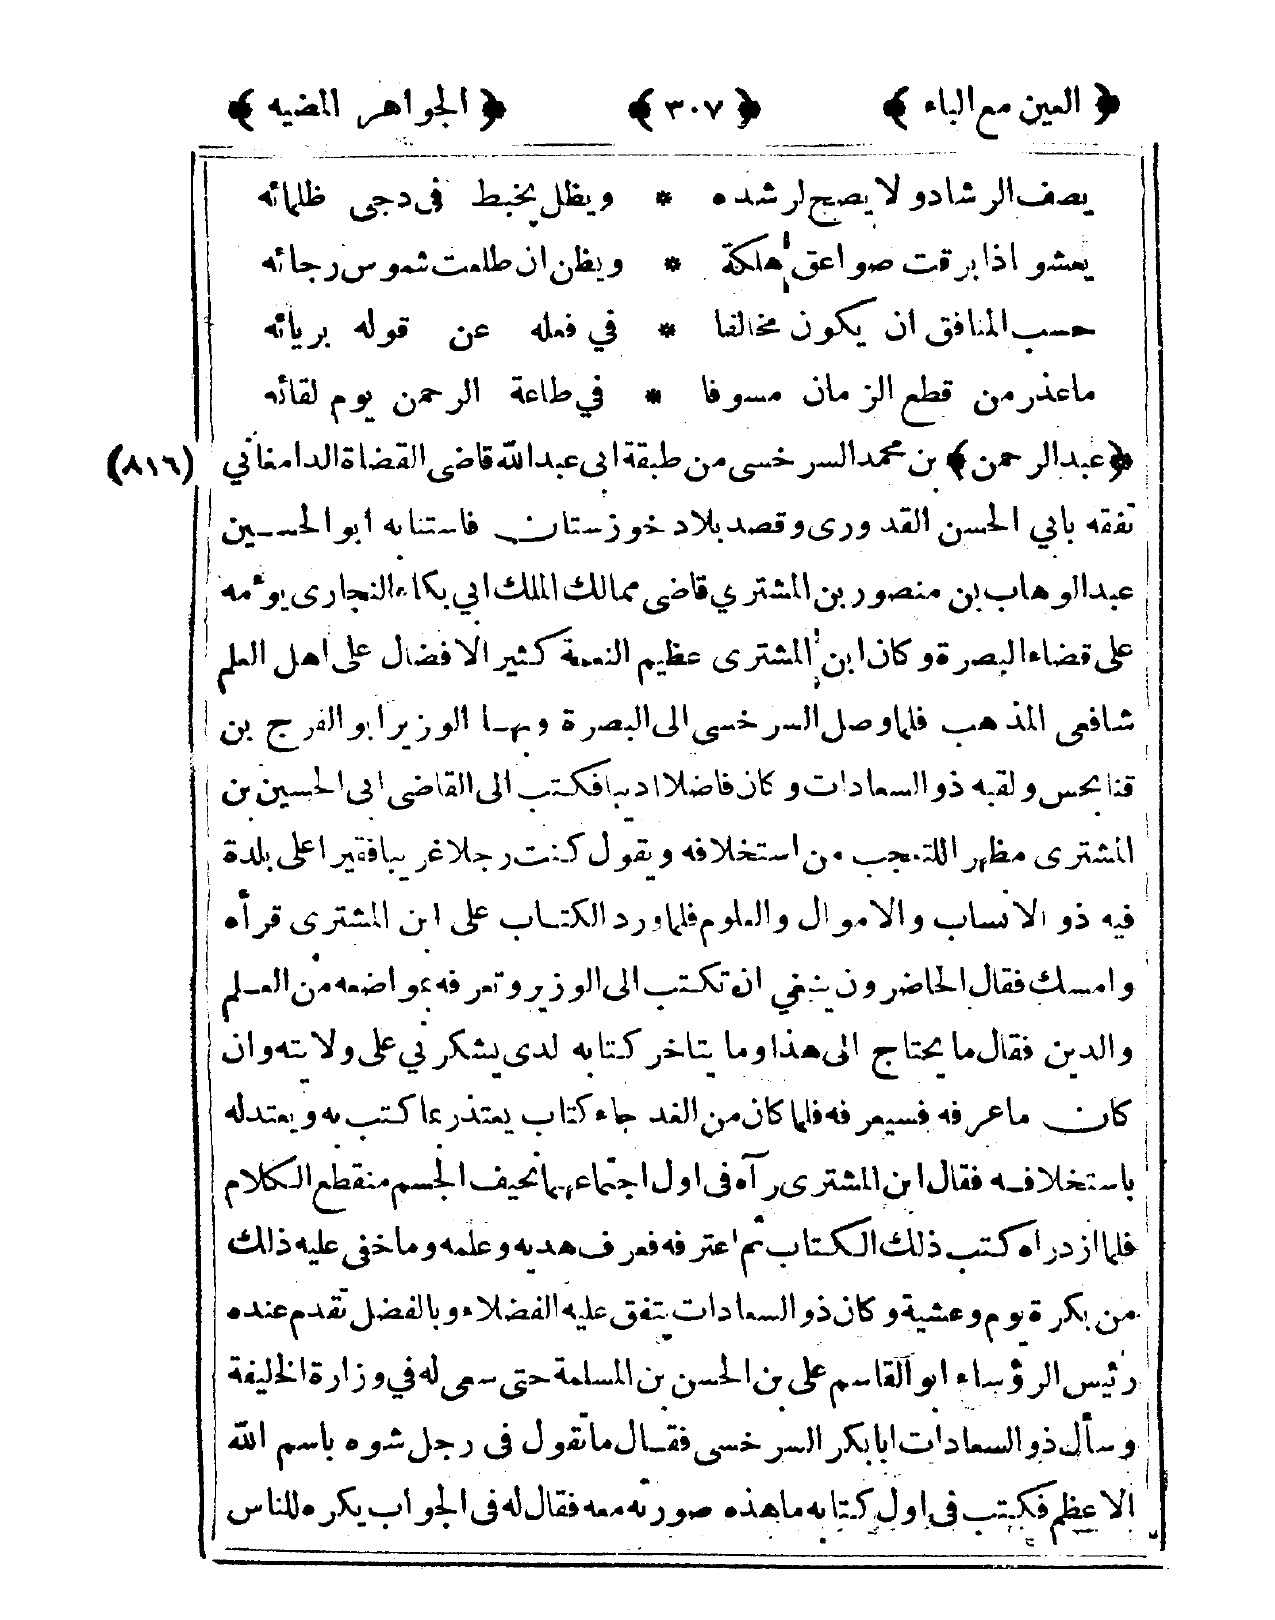 ﴿ العين مع الباء ﴾ ﴿ ٣٠٧ ﴾ ﴿ الجواهر المضيه ﴾
يصف الرشاد ولا يصيح لرشده * ويظل يخبط فى دجى ظلمائه
يعشو اذا برقت صواعق اهلكة * ويظن ان طلعت شموس رجائه
حسب المنافق ان يكون مخالفا * في فعله عن قوله بريائه
ماعذر من قطع الزمان مسوفا * في طاعة الرحمن يوم لقائه
﴿ عبدالرحمن ﴾ بن محمد السرخسى من طبقة ابى عبدالله قاضى القضاة الدامغاني (٨١٦)
تفقه بابي الحسن القدورى وقصد بلاد خوزستان فاستنابه ابوالحسين
عبدالوهاب بن منصور بن المشتري قاضى ممالك الملك ابي بكاء النجارى يومئه
على قضاء البصرة وكان ابن المشترى عظيم النعمة كثير الافضال على اهل العلم
شافعى المذهب فلما وصل السرخسى الى البصرة وبها الوزير ابو الفرج بن
قنابحس ولقبه ذو السعادات وكان فاضلا اديبا فكتب الى القاضى ابى الحسين بن
المشترى مظهرا للتعجب من استخلافه ويقول كنت رجلا غريبا فقيرا على بلدة
فيه ذو الانساب والاموال والعلوم فلما ورد الكتاب على ابن المشترى قرأه
وامسك فقال الحاضرون ينبغي ان تكتب الى الوزير وتعرفه بمواضعه من العلم
والدين فقال ما يحتاج الى هذا وما يتاخر كتابه لدى يشكرني على ولايته وان
كان ماعرفه فسيعرفه فلما كان من الغد جاء كتاب يعتذر عما كتب به ويعتدله
باستخلافه فقال ابن المشترى رآه فى اول اجتماعهما نحيف الجسم منقطع الكلام
فلما ازدراه كتب ذلك الكتاب ثم اعترفه فعرف هديه وعلمه وما خفى عليه ذلك
من بكرة يوم وعشية وكان ذو السعادات يتفق عليه الفضلاء وبالفضل تقدم عنده
رئيس الرؤساء ابو القاسم على بن الحسن بن المسلمة حتى سعى له في وزارة الخليفة
وسأل ذو السعادات ابا بكر السرخسى فقال ما تقول فى رجل شوه باسم الله
الاعظم فكتب فى اول كتابه ما هذه صورته معه فقال له فى الجواب يكره للناس